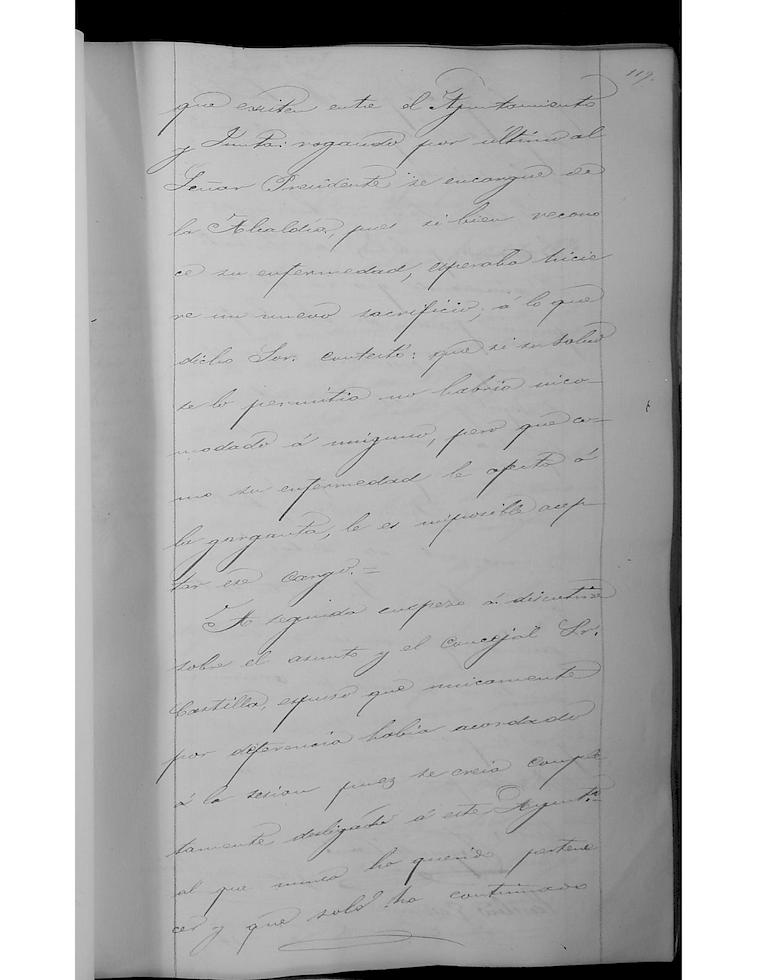 119.
que existen entre el Ayuntamiento
y Junta: rogando por último al
Señor Presidente se encargue de
la Alcaldía, pues si bien recono
ce su enfermedad, esperaba hicie
re un nuevo sacrificio; á lo que
dicho Sor. contestó: que si su salud
se lo permitia no habria inco-
modado á ninguno, pero que co-
mo su enfermedad le afecta á
la garganta, le es imposible acep-
tar ese cargo.=
A seguida empezo á discutirse
sobre el asunto y el Concejal Sr.
Castilla, espuso que unicamente
por deferencia había acordado
á la sesion puez se creia comple
tamente desligado á este Ayunt.º
al que nunca ha querido pertene
cer y que solo ha continuado